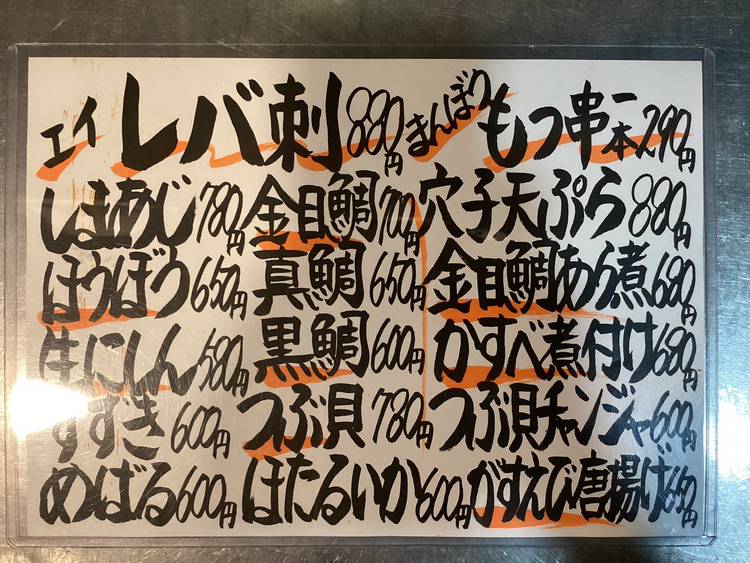 エイレバ刺880円 まんぼうもつ串一本290円
しまあじ780円 金目鯛700円 穴子天ぷら880円
ほうぼう650円 真鯛650円 金目鯛あら煮680円
生にしん580円 黒鯛600円 かすべ煮付け680円
すずき600円 つぶ貝780円 つぶ貝チャンジャ600円
めばる600円 ほたるいか600円 がすえび唐揚げ650円